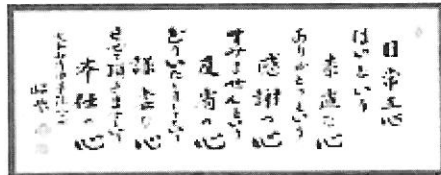 日常五心
はいという
素直な心
ありがとうという
感謝の心
すみませんという
反省の心
謙虚な心
させて頂きますという
奉仕の心